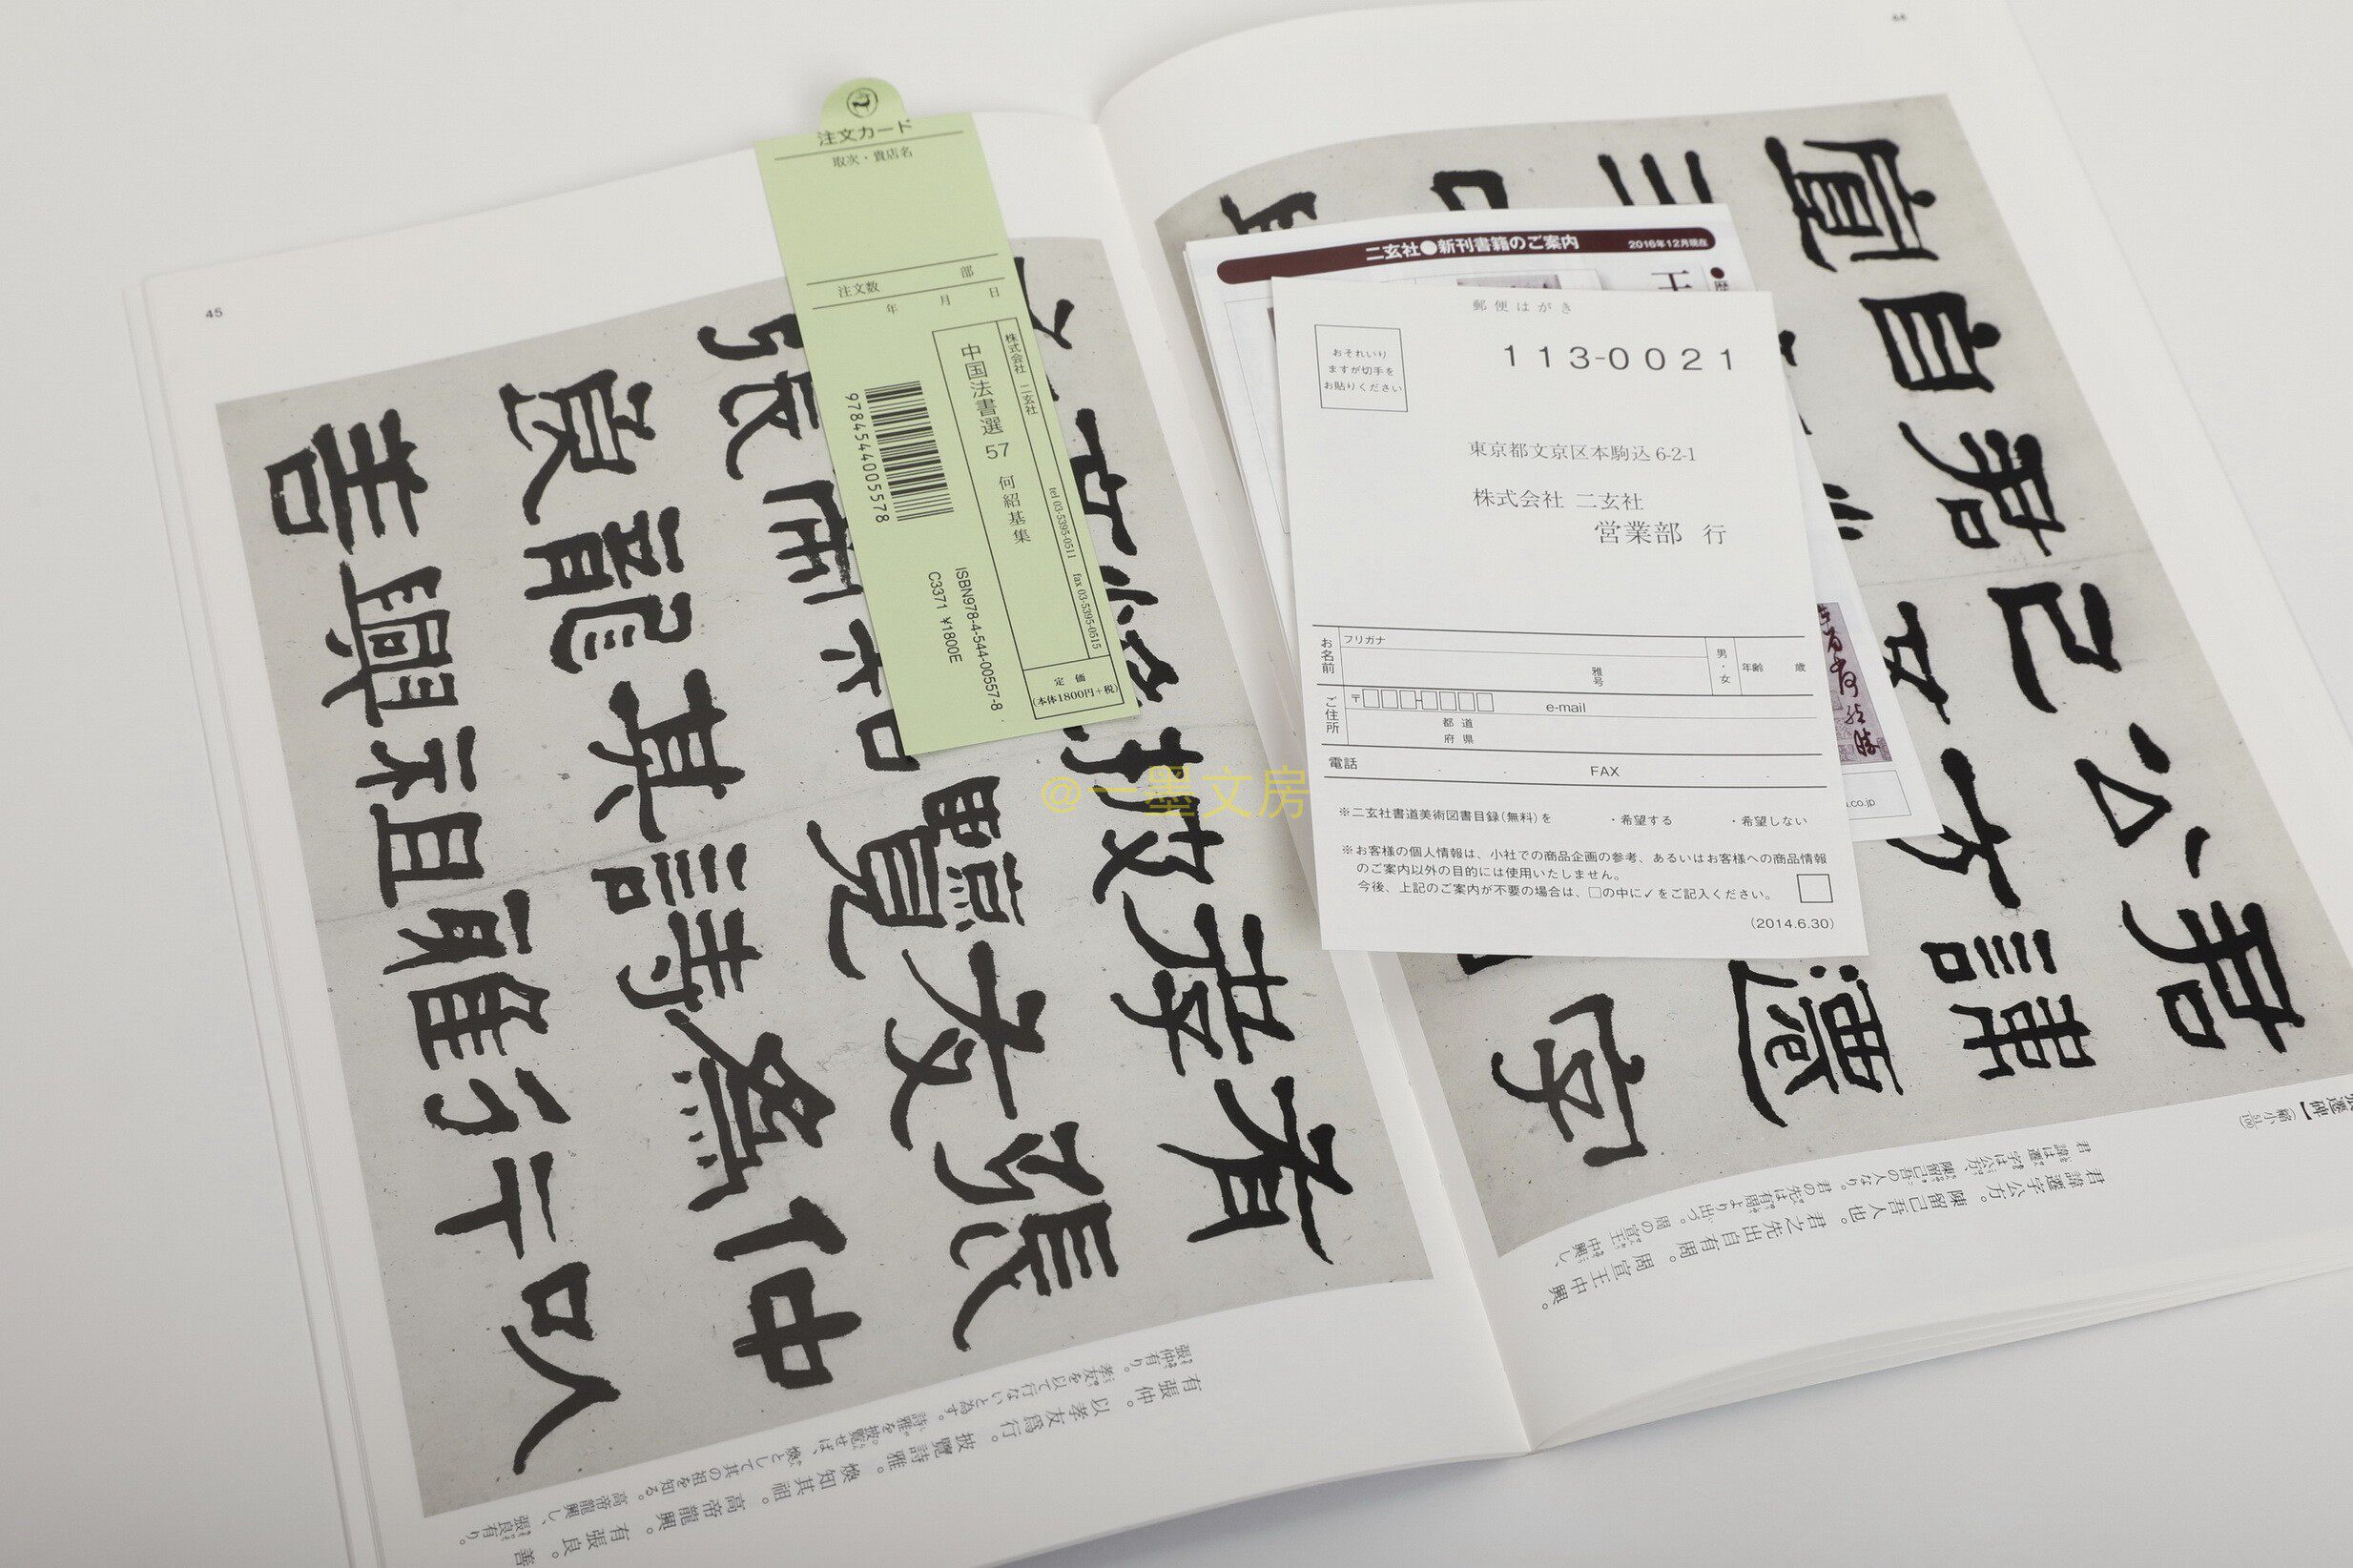 45
注文カード
取次・貴店名
注文数 部
年 月 日
株式会社 二玄社
tel 03-5395-0511 fax 03-5395-0515
中国法書選 57 何紹基集
定 価
(本体1800円+税)
9784544005578
ISBN978-4-544-00557-8
C3371 ¥1800E
二玄社●新刊書籍のご案内 2016年12月現在
郵便はがき
おそれいり
ますが切手を
お貼りください
113-0021
東京都文京区本駒込6-2-1
株式会社 二玄社
営業部 行
お名前
フリガナ
雅号
男・女
年齢 歳
ご住所
〒
e-mail
都道
府県
電話
FAX
※二玄社書道美術図書目録(無料)を ・希望する ・希望しない
※お客様の個人情報は、小社での商品企画の参考、あるいはお客様への商品情報
のご案内以外の目的には使用いたしません。
今後、上記のご案内が不要の場合は、□の中に✓をご記入ください。
(2014.6.30)
.co.jp
君公己君自
諱方
遷
字
孝有
張友覽
仲為詩其龍良
以行于雅祖興善
君諱遷字公方。陳留己吾人也。君之先出自有周。周宣王中興。
有張仲。以孝友爲行。披覽詩雅。煥知其祖。高帝龍興。有張良。善
@一墨文房